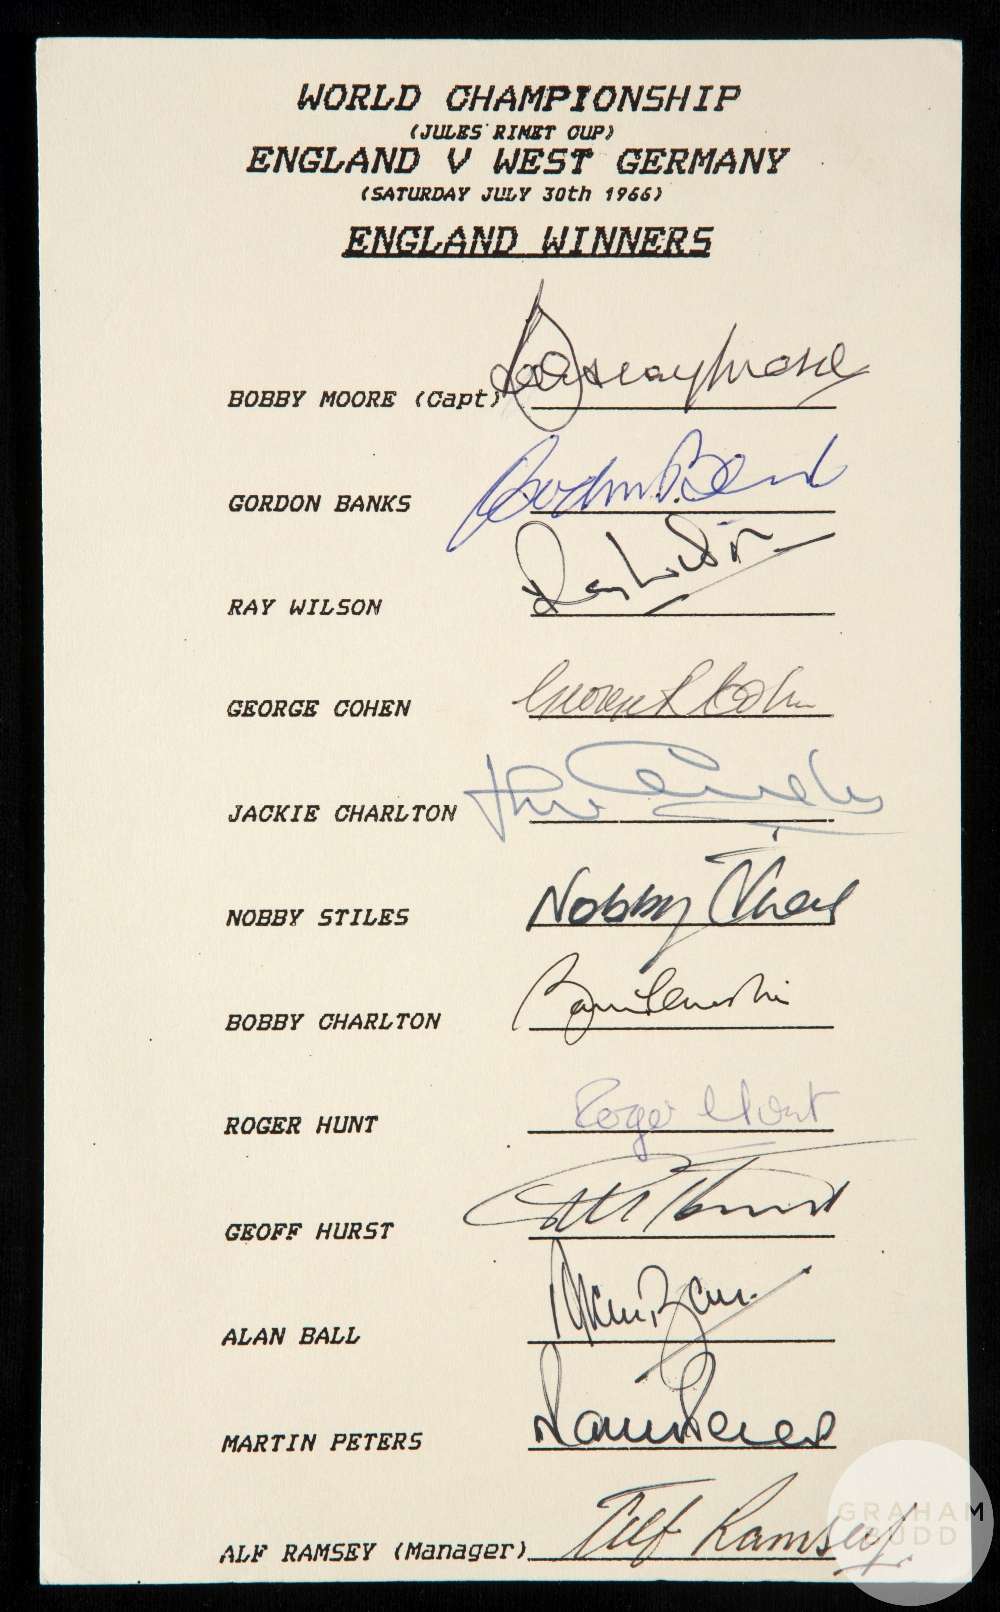 WORLD CHAMPIONSHIP
(JULES RIMET CUP)
ENGLAND V WEST GERMANY
(SATURDAY JULY 30th 1966)
ENGLAND WINNERS
BOBBY MOORE (Capt) Bobby Moore
GORDON BANKS Gordon Banks
RAY WILSON Ray Wilson
GEORGE COHEN George R Cohen
JACKIE CHARLTON
NOBBY STILES Nobby Stiles
BOBBY CHARLTON
ROGER HUNT Roger Hunt
GEOFF HURST
ALAN BALL Alan Ball
MARTIN PETERS Martin Peters
ALF RAMSEY (Manager) Alf Ramsey.
GRAHAM
BUDD